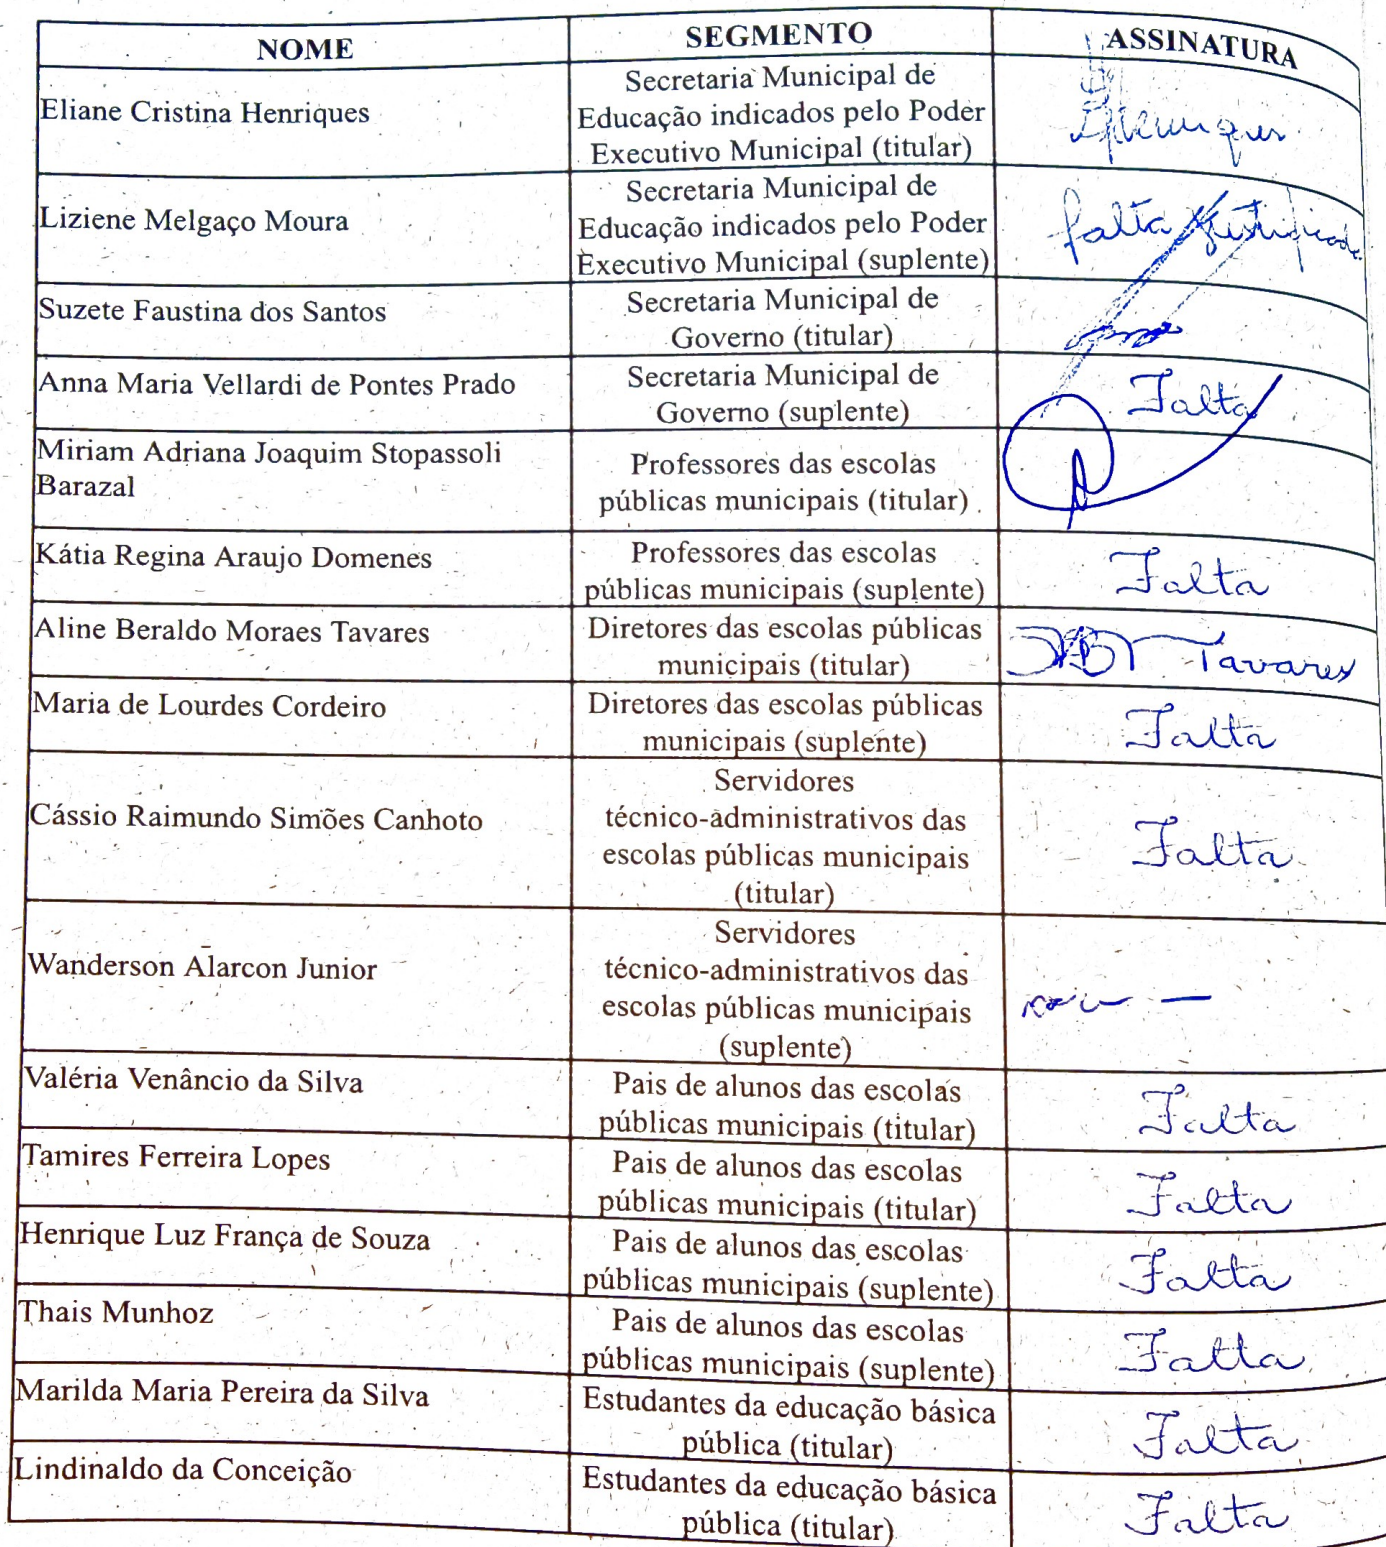 NOME SEGMENTO ASSINATURA
Eliane Cristina Henriques
Secretaria Municipal de
Educação indicados pelo Poder
Executivo Municipal (titular)
Henriques
Liziene Melgaço Moura
Secretaria Municipal de
Educação indicados pelo Poder
Executivo Municipal (suplente)
falta Justificada
Suzete Faustina dos Santos
Secretaria Municipal de
Governo (titular)
Anna Maria Vellardi de Pontes Prado
Secretaria Municipal de
Governo (suplente)
Falta
Miriam Adriana Joaquim Stopassoli
Barazal
Professores das escolas
públicas municipais (titular)
Kátia Regina Araujo Domenes
Professores das escolas
públicas municipais (suplente)
Falta
Aline Beraldo Moraes Tavares
Diretores das escolas públicas
municipais (titular)
Tavares
Maria de Lourdes Cordeiro
Diretores das escolas públicas
municipais (suplente)
Falta
Cássio Raimundo Simões Canhoto
Servidores
técnico-administrativos das
escolas públicas municipais
(titular)
Falta
Wanderson Alarcon Junior
Servidores
técnico-administrativos das
escolas públicas municipais
(suplente)
Valéria Venâncio da Silva
Pais de alunos das escolas
públicas municipais (titular)
Falta
Tamires Ferreira Lopes
Pais de alunos das escolas
públicas municipais (titular)
Falta
Henrique Luz França de Souza
Pais de alunos das escolas
públicas municipais (suplente)
Falta
Thais Munhoz
Pais de alunos das escolas
públicas municipais (suplente)
Falta
Marilda Maria Pereira da Silva
Estudantes da educação básica
pública (titular)
Falta
Lindinaldo da Conceição
Estudantes da educação básica
pública (titular)
Falta